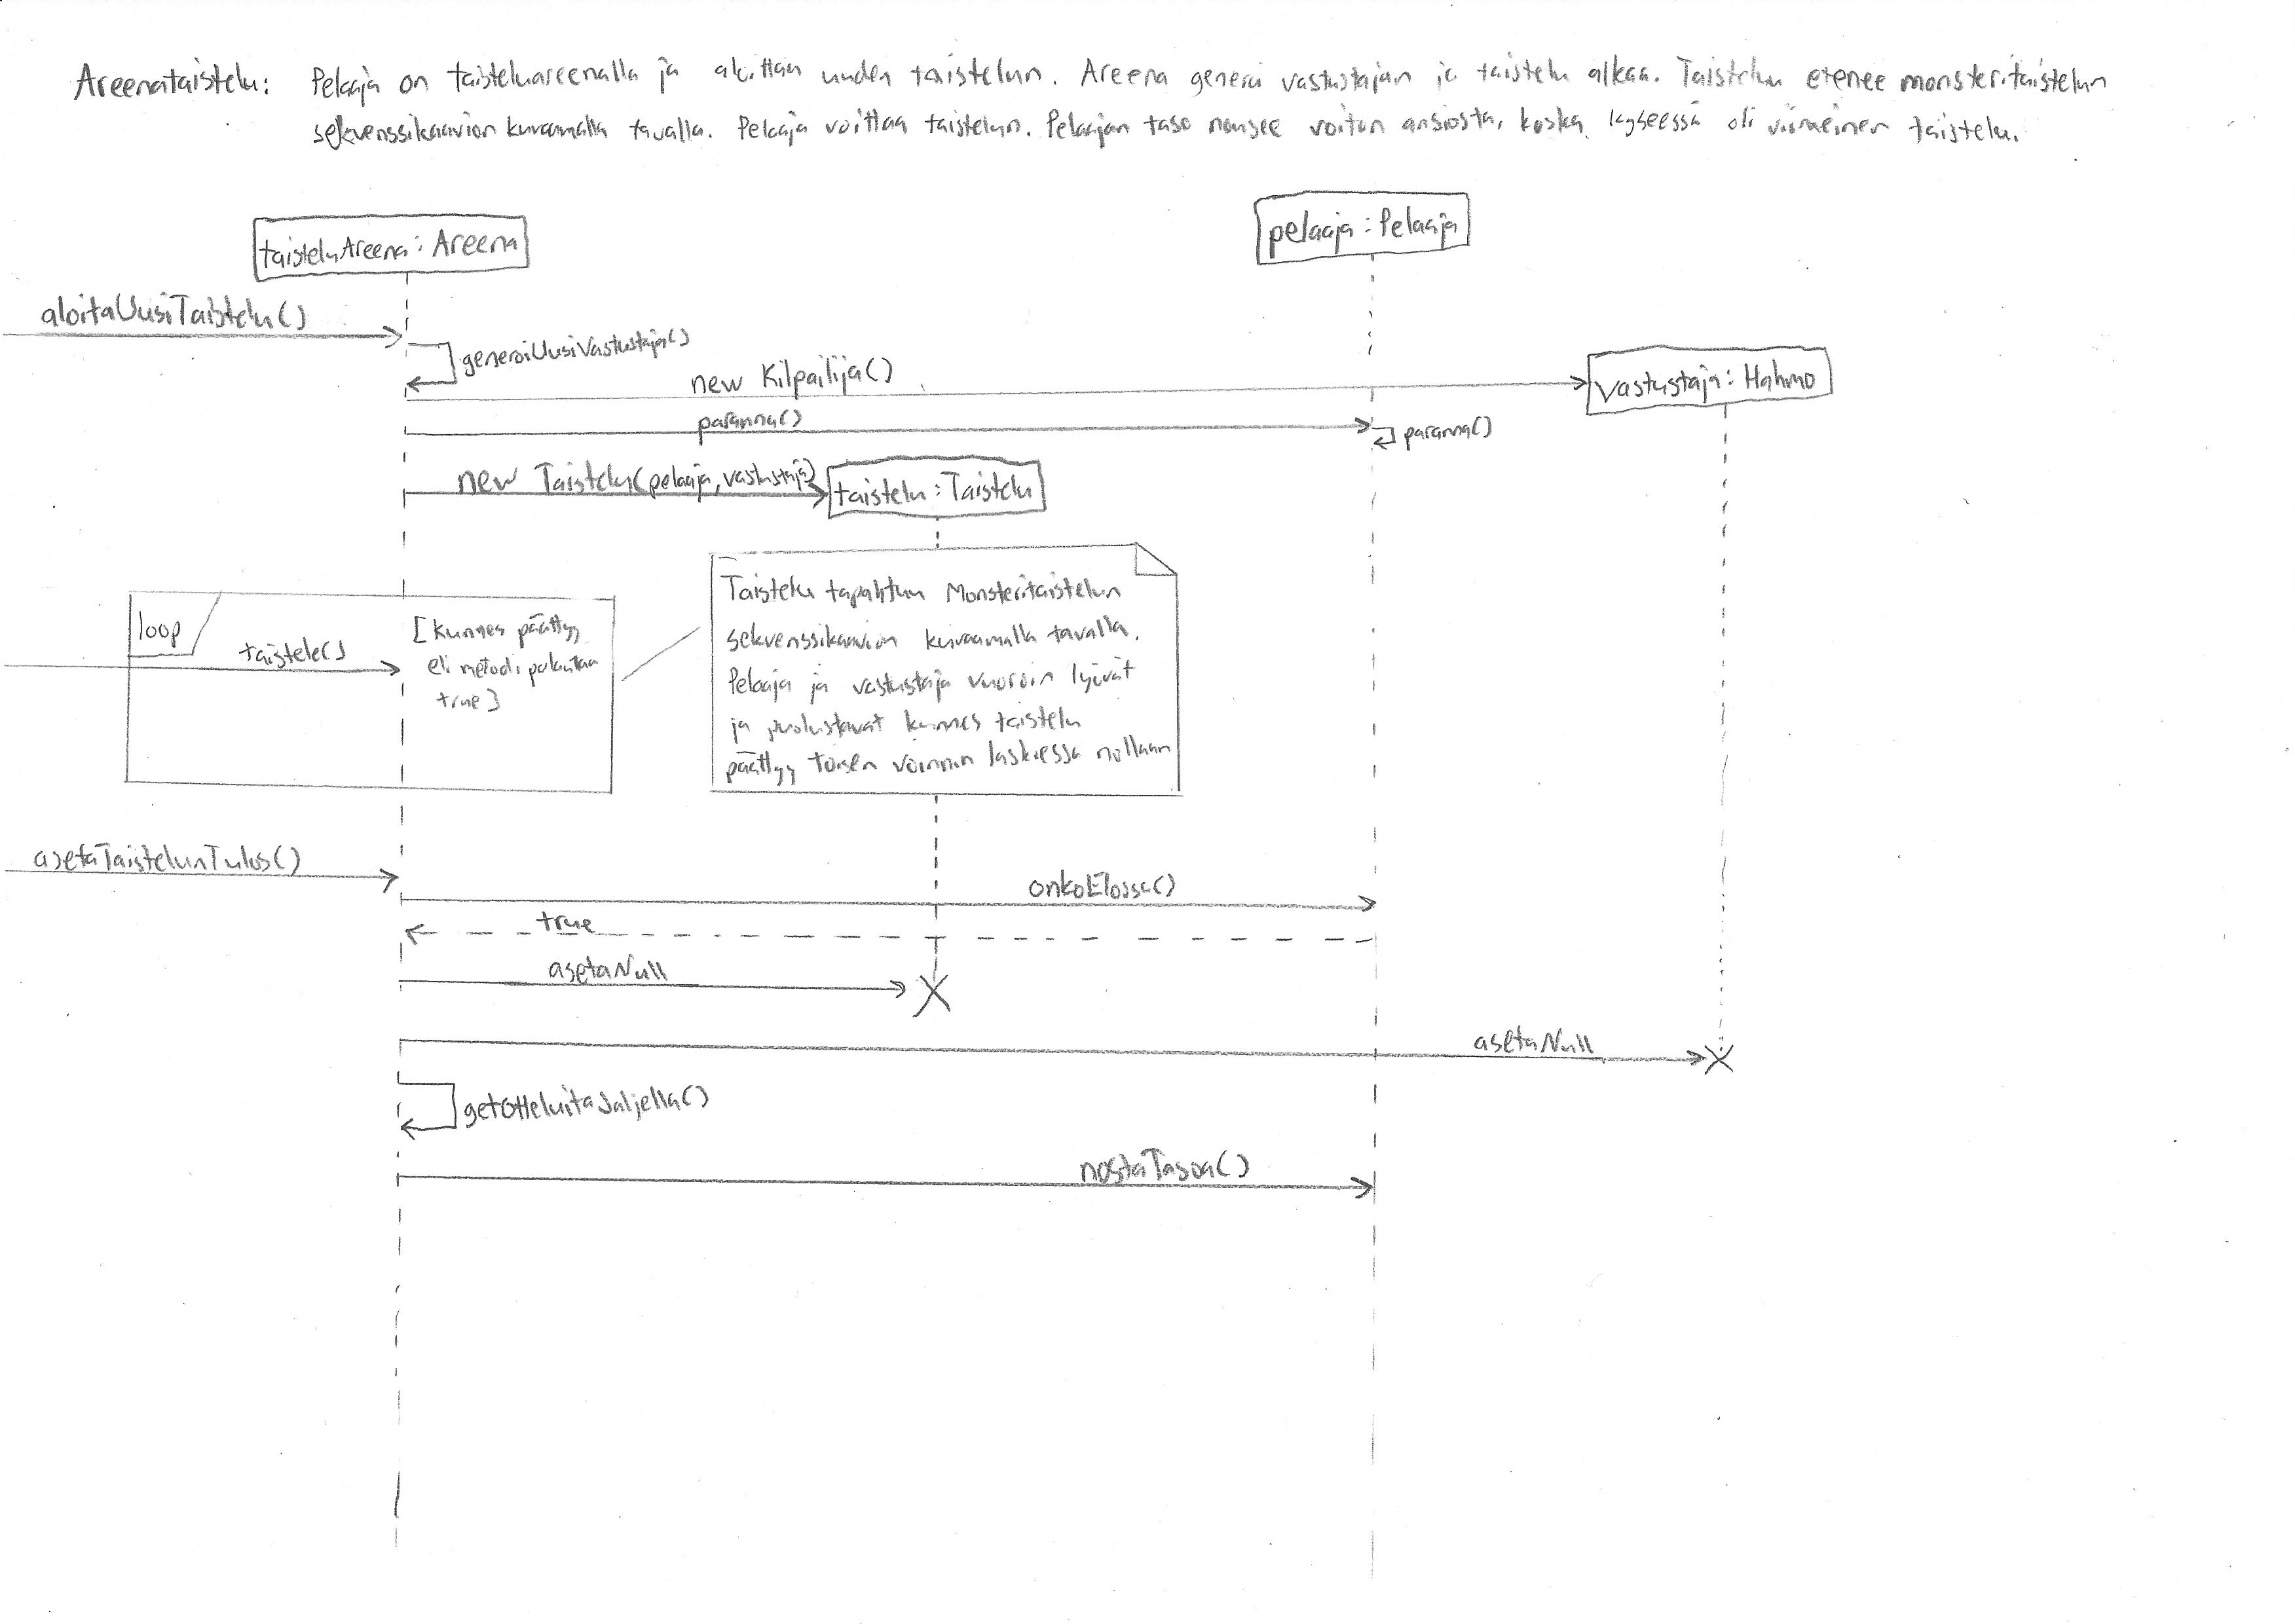 Areenataistelu: Pelaaja on taisteluareenalla ja aloittaa uuden taistelun. Areena generoi vastustajan ja taistelu alkaa. Taistelu etenee monsteritaistelun
sekvenssikaavion kuvaamalla tavalla. Pelaaja voittaa taistelun. Pelaajan taso nousee voiton ansiosta, koska kyseessä oli viimeinen taistelu.
pelaaja : Pelaaja
taisteluAreena : Areena
aloitaUusiTaistelu()
generoiUusiVastustaja()
new Kilpailija()
vastustaja : Hahmo
paranna()
paranna()
new Taistelu(pelaaja, vastustaja)
taistelu : Taistelu
Taistelu tapahtuu Monsteritaistelun
sekvenssikaavion kuvaamalla tavalla.
Pelaaja ja vastustaja vuoroin lyövät
ja puolustavat kunnes taistelu
päättyy toisen voinnin laskiessa nollaan
loop
taistele()
[kunnes päättyy
eli metodi palauttaa
true]
asetaTaistelunTulos()
onkoElossa()
true
asetaNull
asetaNull
getOtteluitaJaljella()
nostaTasoa()